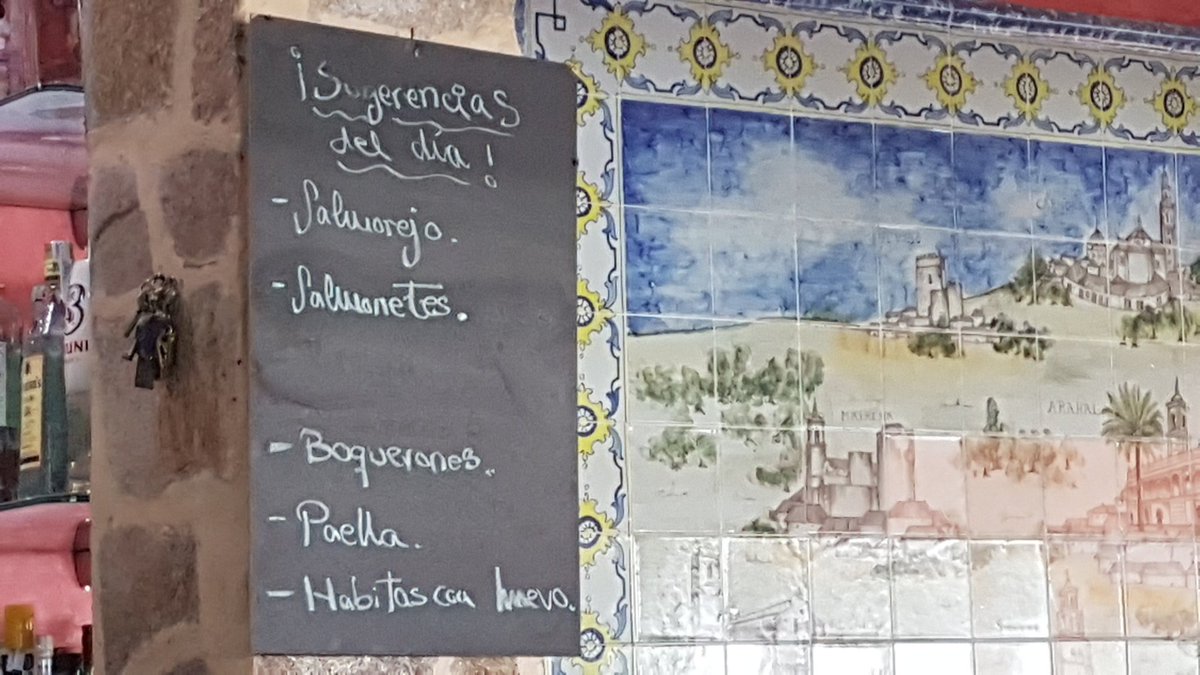 ¡Sugerencias
del día!
- Salmorejo.
- Salmonetes.
- Boquerones.
- Paella.
- Habitas con huevo.
MAIRENA
ARAHAL